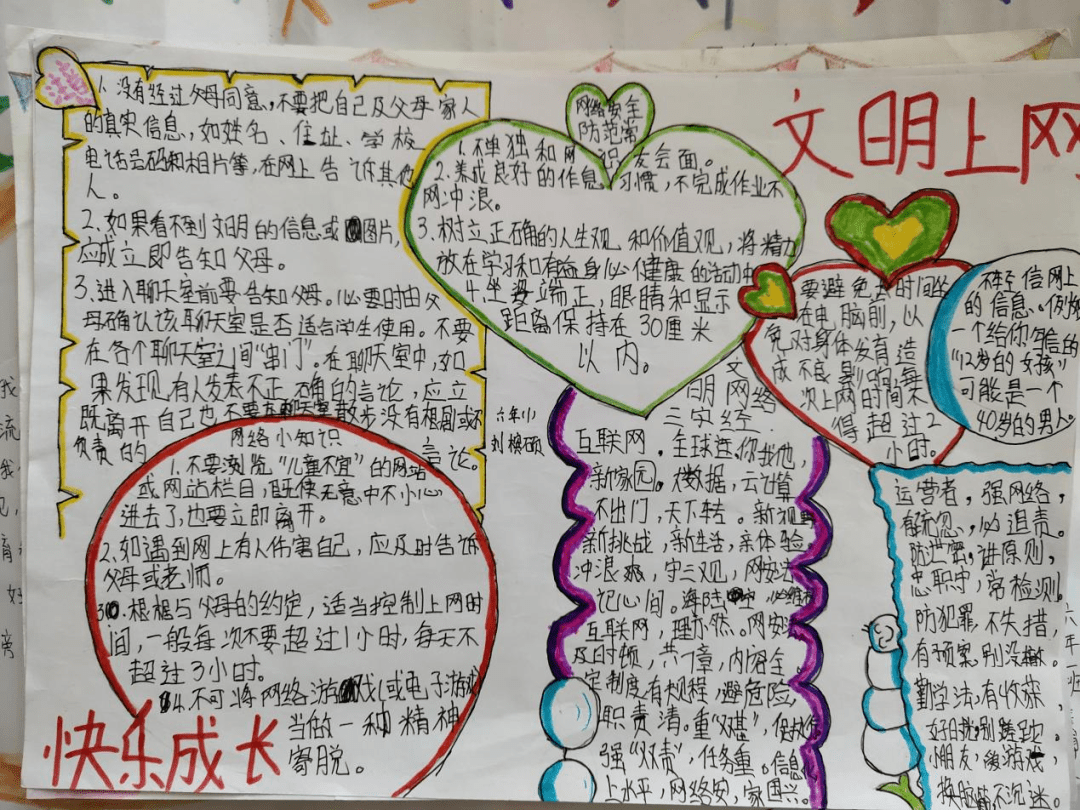 文明上网
1.没有经过父母同意,不要把自己及父母家人
的真实信息,如姓名、住址、学校
电话号码和相片等,在网上告诉其他
人。
2.如果看不到文明的信息或图片,
应成立即告知父母。
3.进入聊天室前要告知父母。必要时由父
母确认该聊天室是否适合学生使用。不要
在各个聊天室之间“串门”。在聊天室中,如
果发现有人发表不正确的言论,应立
既离开自己也不要在聊天室散步没有根剧或不
负责的言论。
网络安全
防范常
1.不单独和网识友会面。
2.养成良好的作息习惯,不完成作业不
网冲浪。
3.树立正确的人生观和价值观,将精力
放在学习和有益身心健康的活动中
4.坐姿端正,眼睛和显示
距离保持在30厘米
以内。
要避免长时间坐
在电脑前,以
免对身体发育造
成不良影响每
次上网的时间不
得超过2
小时。
不轻信网上
的信息。例如
一个给你写信的
“12岁的女孩”
可能是一个
40岁的男人。
网络小知识
1.不要浏览“儿童不宜”的网站
或网站栏目,既使无意中不小心
进去了,也要立即离开。
2.如遇到网上有人伤害自己,应及时告诉
父母或老师。
3.根据与父母的约定,适当控制上网时
间,一般每次不要超过1小时,每天不
超过3小时。
4.不可将网络游戏(或电子游戏)
当做一种精神
寄脱。
快乐成长
文
明网络
三字经
互联网,全球连,你我他,
新家园。大数据,云计算
不出门,天下转。新视野
新挑战,新生活,亲体验
冲浪,守三观,网安法
记心间。海陆空
互联网,理亦然。网安
及时顿,共七章,内容全
定制度,有规程,避危险,
职责清。重“双基”,
强“双责”,任务重。信息
上水平,网络安,家国兴。
运营者,强网络,
有疏忽,必追责。
防泄密,讲原则,
忠职守,常检测。
防犯罪,不失措,
有预案,别没辙。
勤学法,有收获,
小朋友,爱游戏,
换脑筋,不沉迷。